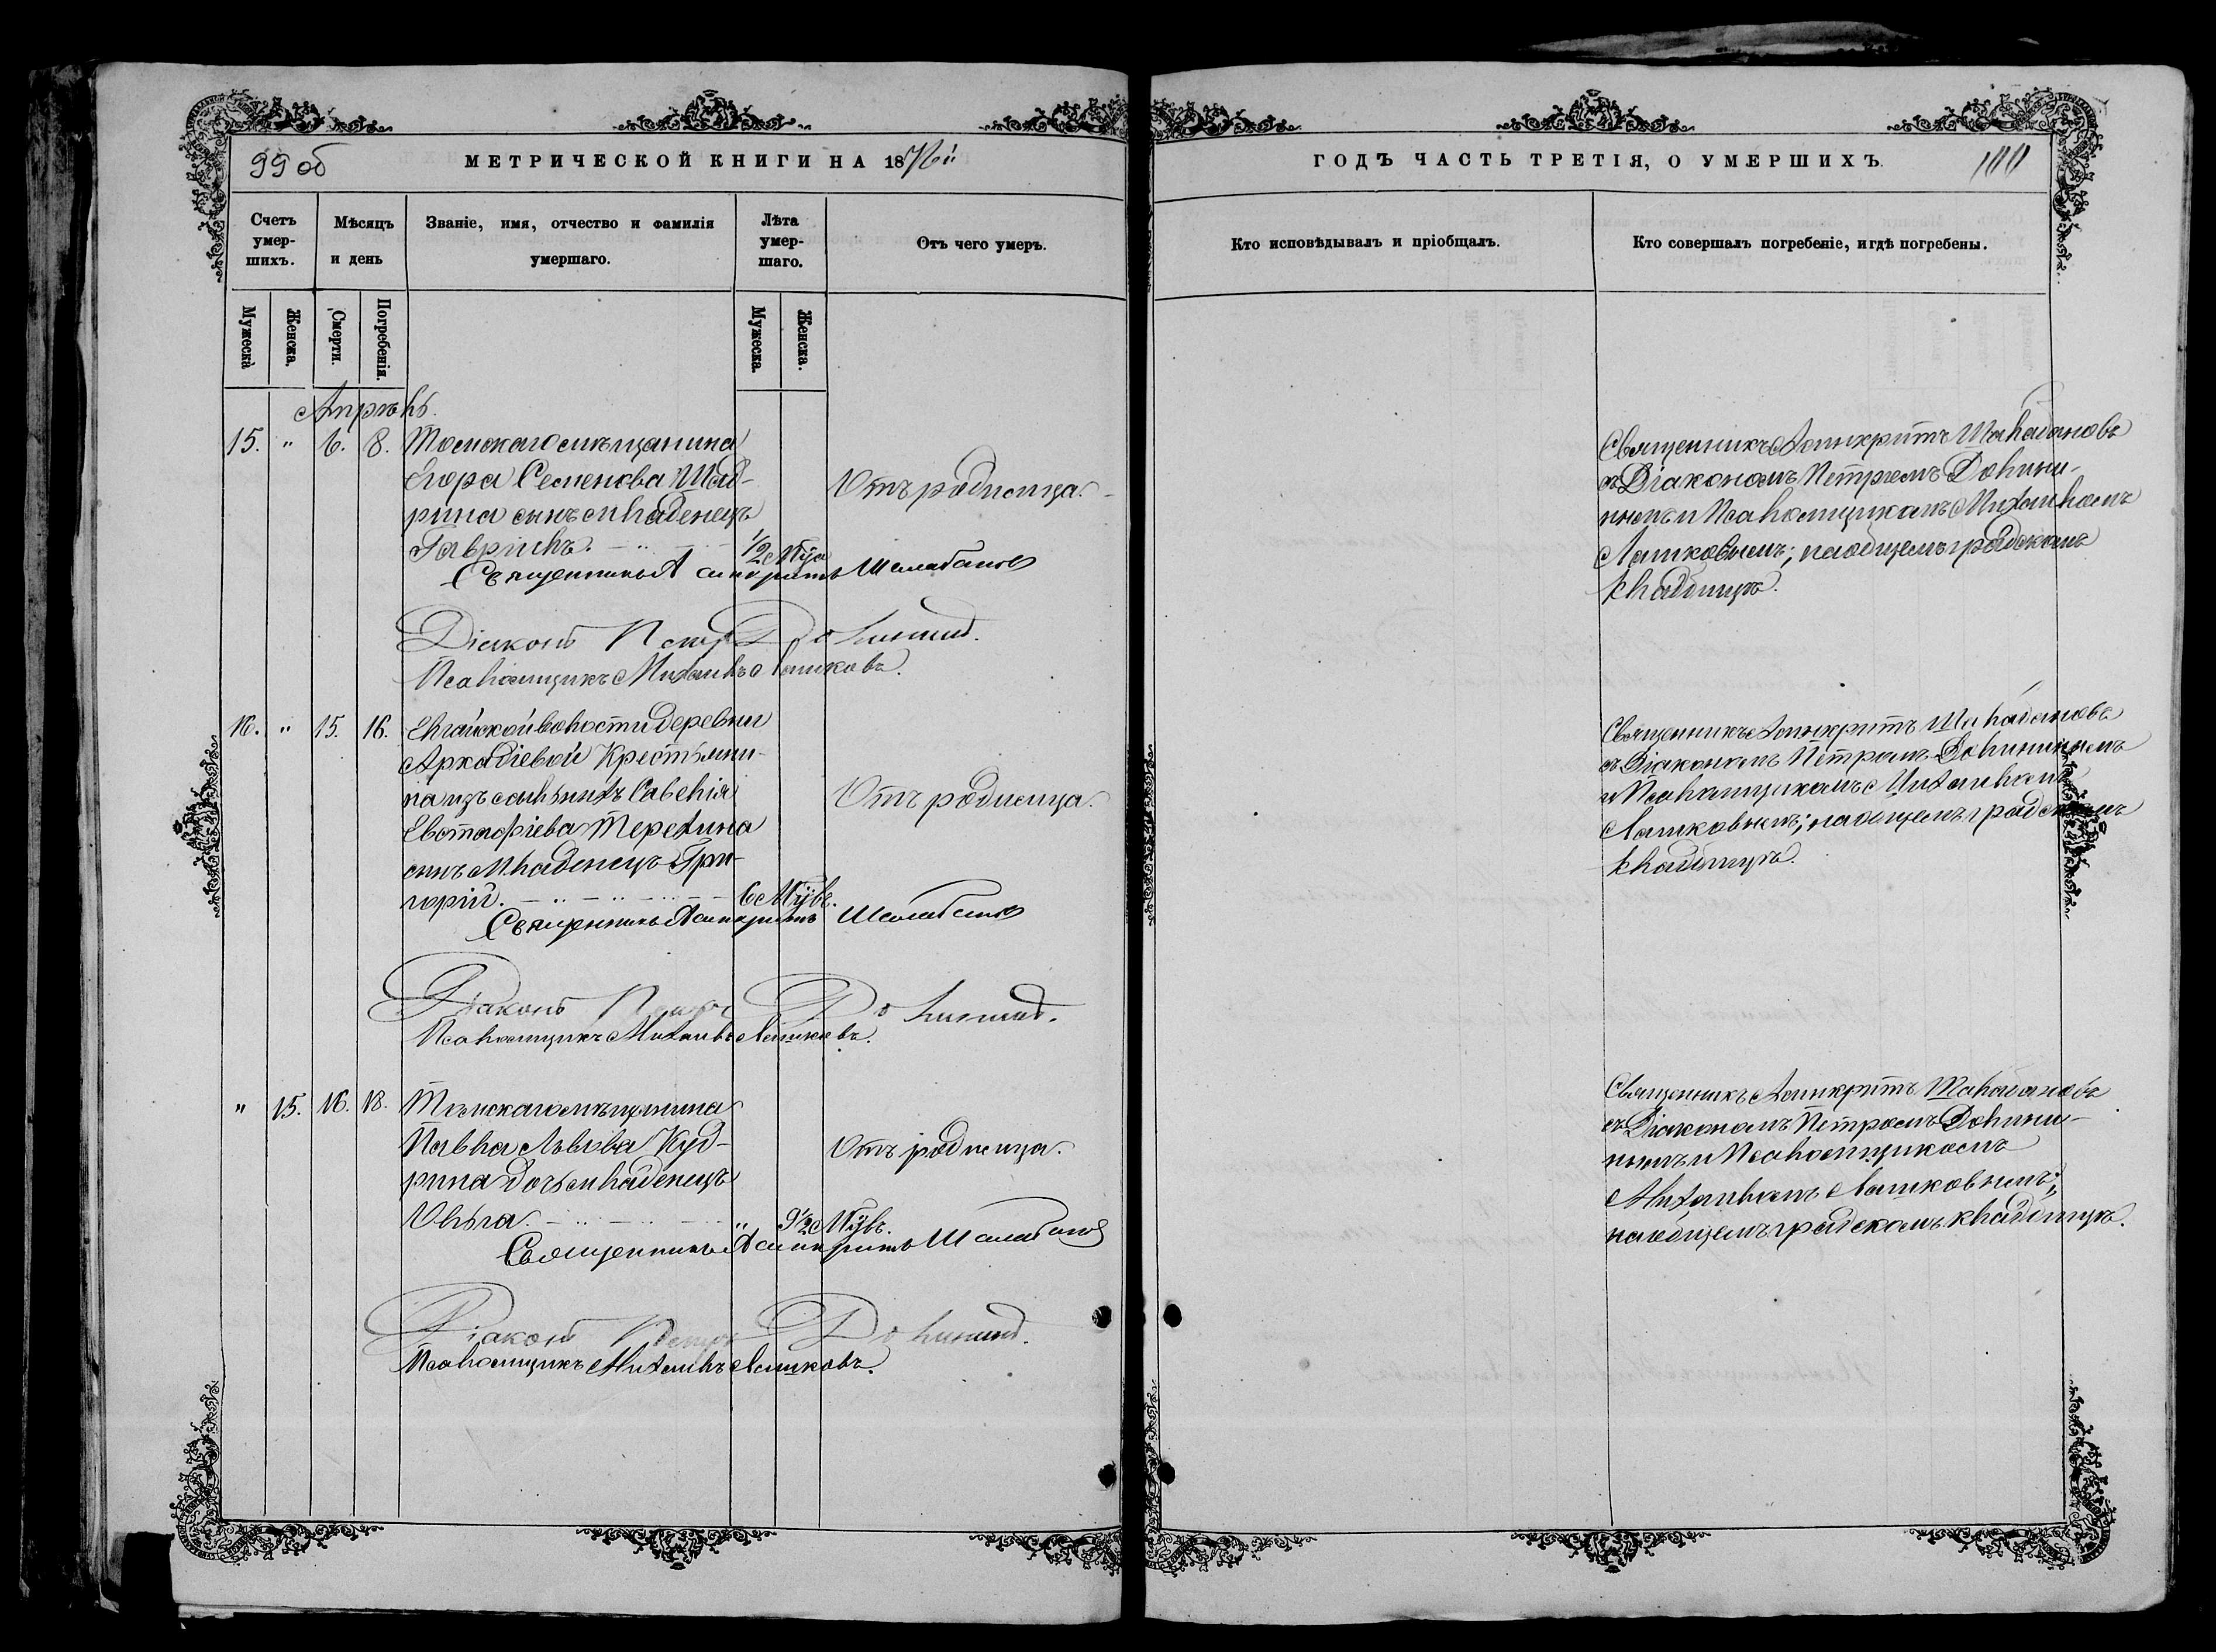 99 об
МЕТРИЧЕСКОЙ КНИГИ НА 187 й
Счетъ умершихъ.
Мѣсяцъ и день
Званіе, имя, отчество и фамилія умершаго.
Лѣта умершаго.
Отъ чего умеръ.
Мужеска
Женска.
Смерти.
Погребенія.
Мужеска.
Женска.
Апрѣль.
15. " 6. 8. Томскаго мѣщанина
Егора Семенова Шад-
рина сынъ младенецъ
Гавріилъ. 1/2 мѣся
Отъ родимца.
Священникъ Асинкритъ Шалабанов
Діаконъ Петръ Долининъ.
Псаломщикъ Михаилъ Лашковъ.
16. " 15. 16. Елгайской волости деревни
Аркадіевой Крестьяни-
на изъ ссыльныхъ Савелія
Евстафіева Терехина
сынъ младенецъ Гри-
горій. 6 мѣ.
Отъ родимца.
Священникъ Асинкритъ Шалабанов
Діаконъ Петръ Долининъ.
Псаломщикъ Михаилъ Лашковъ.
" 15. 16. 18. Томскаго мѣщанина
Павла Львова Куд-
рина дочь младенецъ
Ольга. " 9 1/2 мѣ.
Отъ родимца.
Священникъ Асинкритъ Шалабанов
Діаконъ Петръ Долининъ.
Псаломщикъ Михаилъ Лашковъ.
ГОДЪ ЧАСТЬ ТРЕТІЯ, О УМЕРШИХЪ.
100
Кто исповѣдывалъ и пріобщалъ.
Кто совершалъ погребеніе, и гдѣ погребены.
Священникъ Асинкритъ Шалабановъ
съ Діакономъ Петромъ Долини-
нымъ и Псаломщикомъ Михаиломъ
Лашковымъ; на общемъ градскомъ
кладбищѣ.
Священникъ Асинкритъ Шалабановъ
съ Діакономъ Петромъ Долининымъ
и Псаломщикомъ Михаиломъ
Лашковымъ; на общемъ градскомъ
кладбищѣ.
Священникъ Асинкритъ Шалабановъ
съ Діакономъ Петромъ Долини-
нымъ и Псаломщикомъ
Михаиломъ Лашковымъ;
на общемъ градскомъ кладбищѣ.